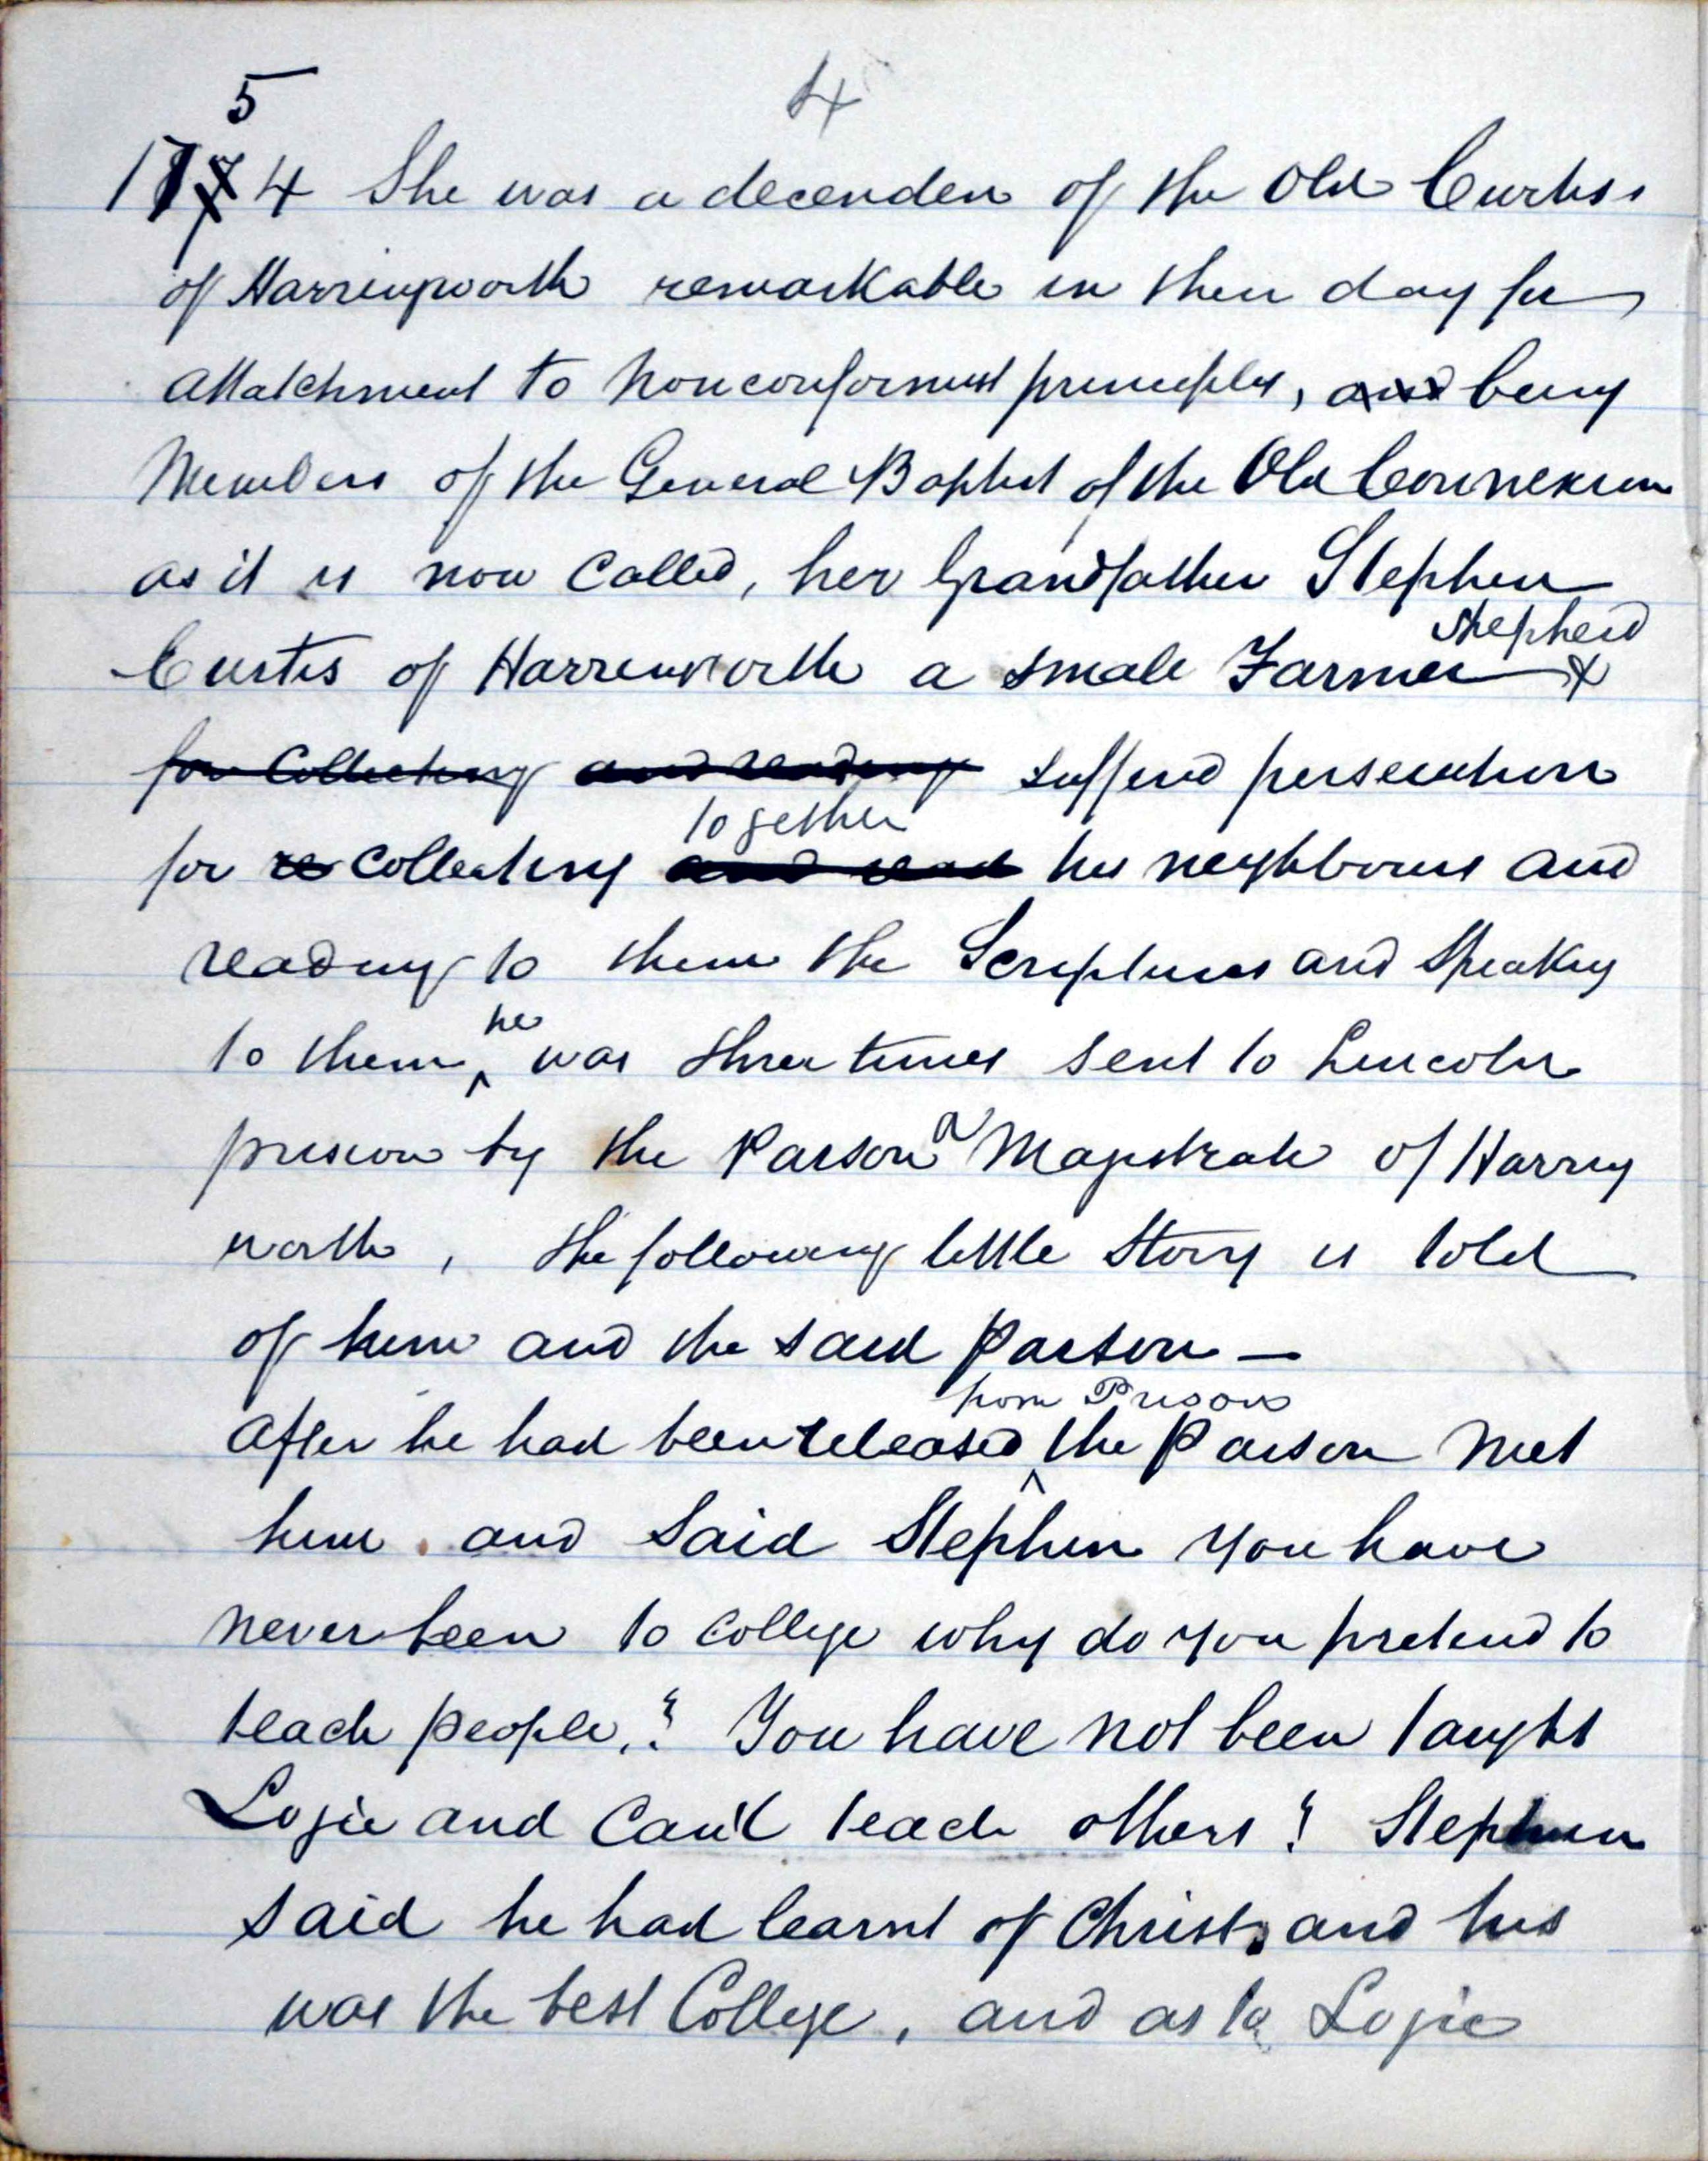 4
5
1774 She was a decenden of the Old Curtiss
of Harringworth remarkable in their day for
Attatchment to Nonconformist principles, and being
Members of the General Baptist of the Old Connexion
as it is now Called, her Grandfather Stephen
Shepherd
Curtis of Harrenworth a small Farmer &
for Collecting and reading suffered persecution
together
for re Collecting and read his neighbours and
reading to them the Scriptures and Speaking
he
to them, was three times sent to Lincoln
prison by the Parson & Magistrate of Harring
worth, the following little Story is told
of him and the said Parson —
from Prison
After he had been released the Parson Met
him . and Said Stephen you have
never been to College why do you pretend to
teach people,? You have not been taught
Logic and Can't teach others! Stephen
said he had learnt of Christ. and his
was the best College, and as to Logic